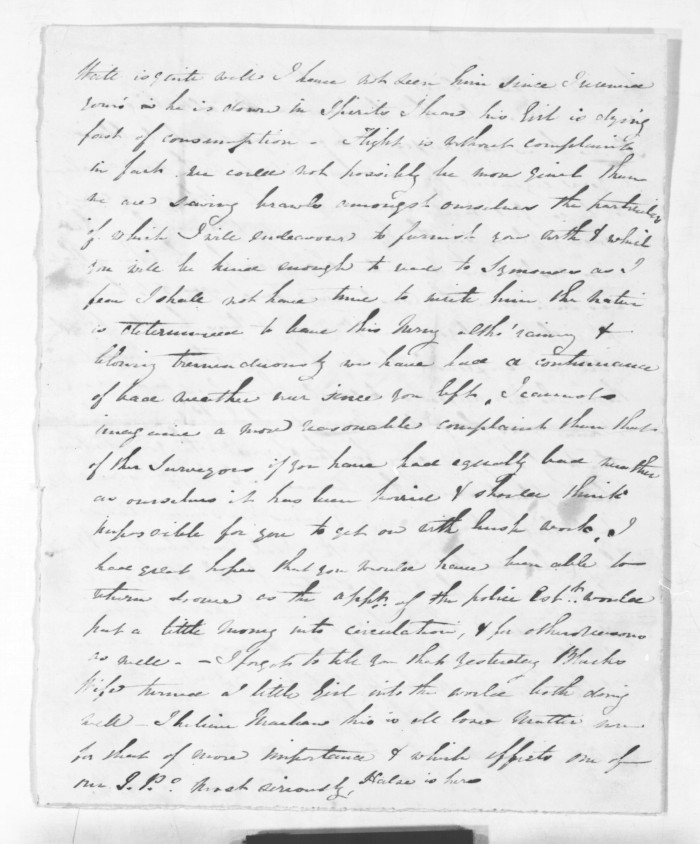 is quite well I have not seen him since I received
yours is he is down in Spirits I hear his Girl is dying
fast of consumption - Flight is without complaint
in fact we could not possibly be more quiet than
we are saving brawls amongst ourselves the particulars
of which I will endeavour to furnish you with & which
you will be kind enough to read to Symonds as I
fear I shall not have time to write him the native
is determined to leave this Morng altho' rainy &
blowing tremendously we have had a continuance
of bad weather ever since you left, I cannot
imagine a more reasonable complaint than that
of the Surveyors if you have had equally bad weather
as ourselves it has been horrid & should think
impossible for you to get on with bush work, I
had great hopes that you would have been able to
return sooner as the appt. of the police Estbt. would
put a little money into circulation, & for other reasons
as well - - I forgot to tell you that yesterday
Wife turned a little Girl into the world both doing
well - I believe this is all local Matter now
for that of more importance & which affects one of
our J.P.s most seriously, is here